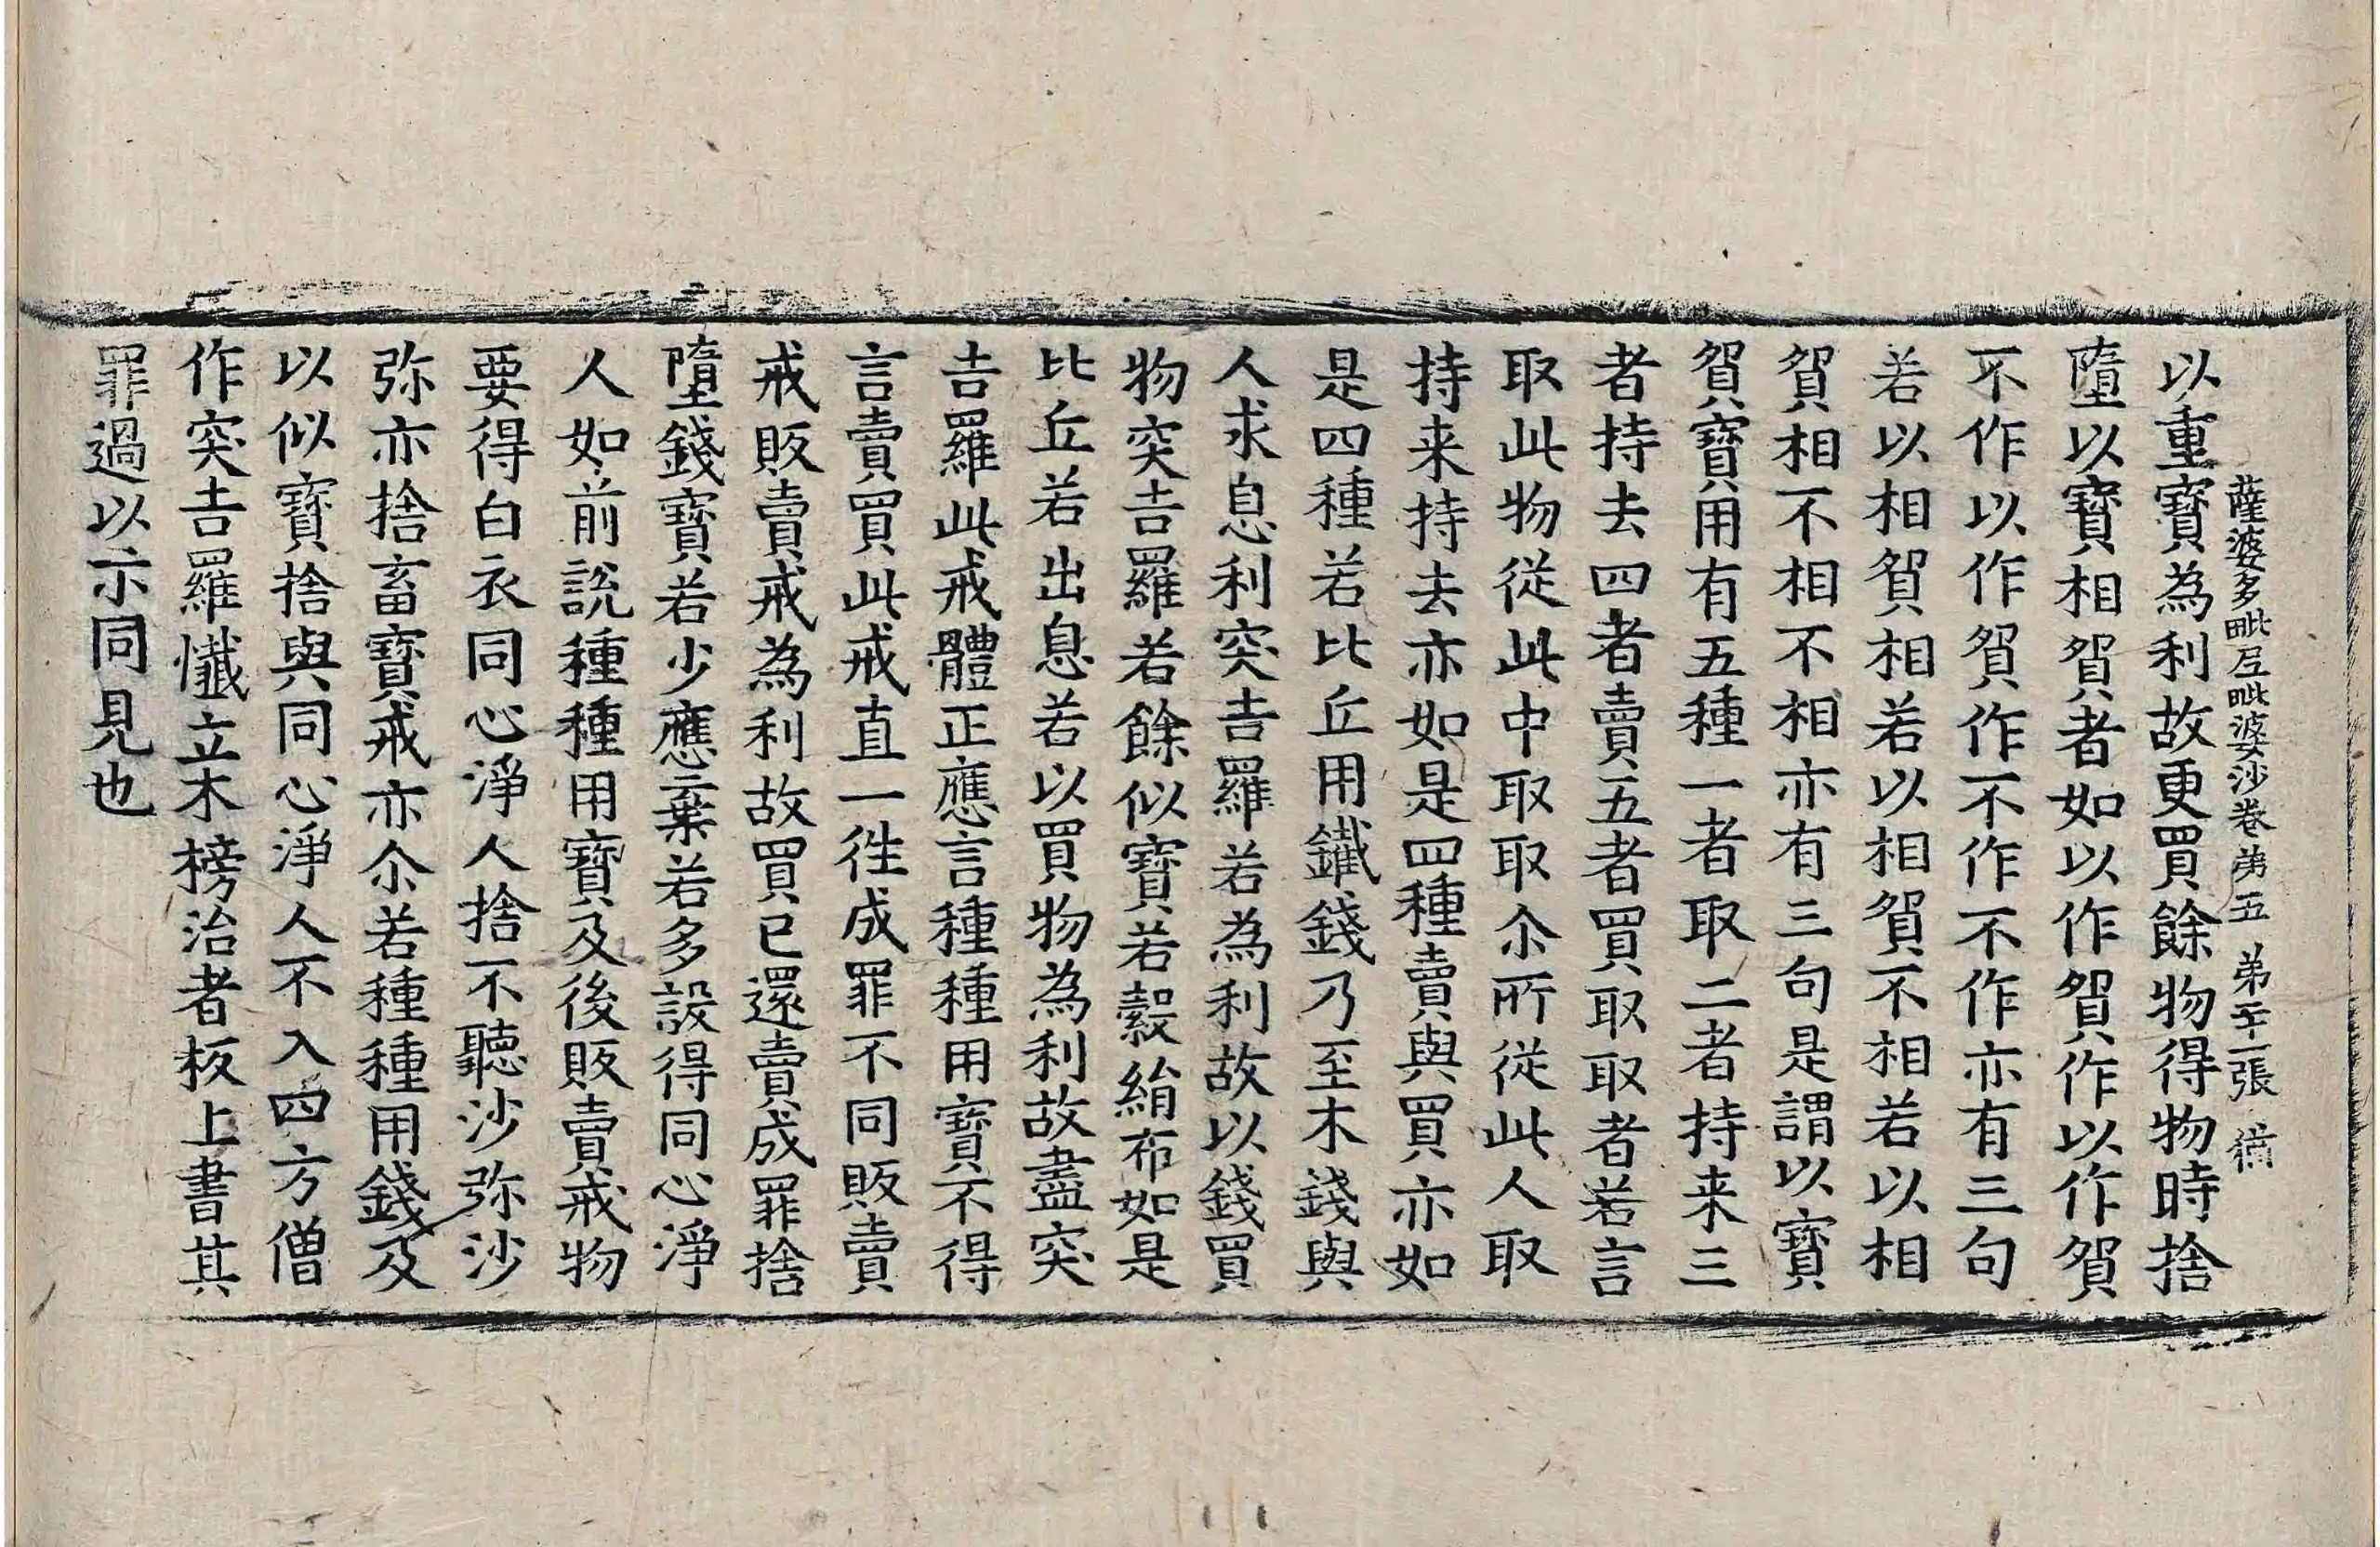 薩婆多毗尼毗婆沙卷第五 第二十一張
以重寶為利故更買餘物得物時捨
墮以寶相貿者如以作貿作以作貿
不作以作貿作不作不作亦有三句
若以相貿相若以相貿不相若以相
貿相不相不相亦有三句是謂以寶
貿寶用有五種一者取二者持来三
者持去四者賣五者買取取者若言
取此物從此中取取尒所從此人取
持来持去亦如是四種賣與買亦如
是四種若比丘用鐵錢乃至木錢與
人求息利突吉羅若為利故以錢買
物突吉羅若餘似寶若穀絹布如是
比丘若出息若以買物為利故盡突
吉羅此戒體正應言種種用寶不得
言賣買此戒直一徃成罪不同販賣
戒販賣戒為利故買已還賣成罪捨
墮錢寶若少應棄若多設得同心淨
人如前說種種用寶及後販賣戒物
要得白衣同心淨人捨不聽沙弥沙
弥亦捨畜寶戒亦尒若種種用錢及
以似寶捨與同心淨人不入四方僧
作突吉羅懺立木榜治者板上書其
罪過以示同見也